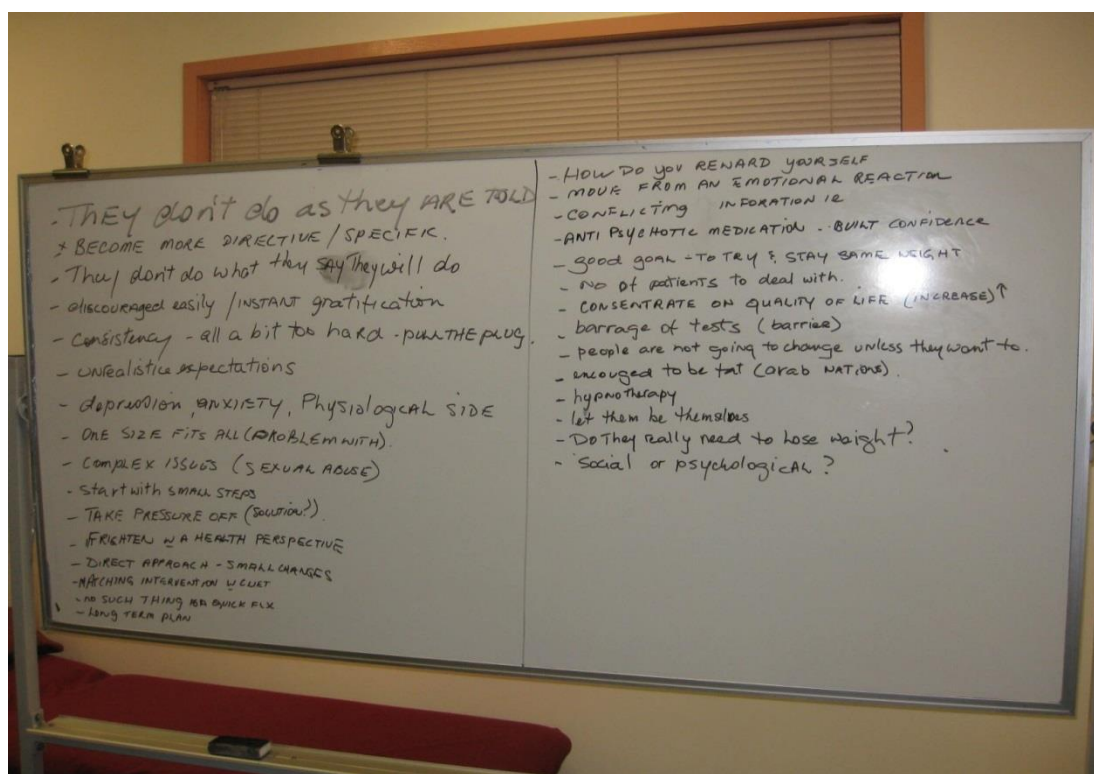 - They don't do as they ARE TOLD
* BECOME MORE DIRECTIVE / SPECIFIC.
- They don't do what they SAY They will do
- discouraged easily / INSTANT gratification
- consistency - all a bit too hard - PULL THE PLUG.
- unrealistice expectations
- depression, ANXIETY, Physiological SIDE
- ONE SIZE FITS ALL (PROBLEM WITH).
- COMPLEX ISSUES (SEXUAL ABUSE)
- Start with SMALL STEPS
- TAKE PRESSURE OFF (SOLUTION?).
- FRIGHTEN W A HEALTH PERSPECTIVE
- DIRECT APPROACH - SMALL CHANGES
- MATCHING INTERVENTION W
- NO SUCH THING QUICK FIX
- LONG TERM PLAN
- HOW DO YOU REWARD YOURSELF
- MOVE FROM AN EMOTIONAL REACTION
- CONFLICTING INFORATION IE
- ANTI PSYCHOTIC MEDICATION .. BUILT CONFIDENCE
- good goal - TO TRY & STAY SAME WEIGHT
- NO of patients to deal with.
- CONSENTRATE ON QUALITY OF LIFE (INCREASE) ↑
- barrage of tests (barrier)
- people are not going to change unless they want to.
- encouged to be fat (arab NATIONS).
- hypnotherapy
- let them be themselves
- Do They really need to lose weight?
- Social or psychological?